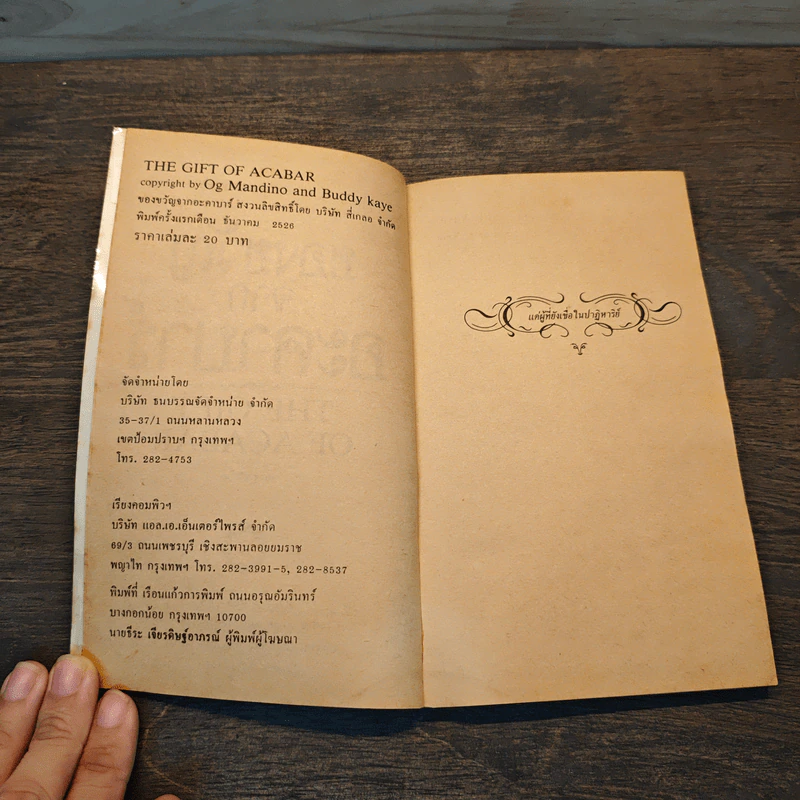 THE GIFT OF ACABAR
copyright by Og Mandino and Buddy kaye
ของขวัญจากอะคาบาร์ สงวนลิขสิทธิ์โดย บริษัท สี่เกลอ จำกัด
พิมพ์ครั้งแรกเดือน ธันวาคม 2526
ราคาเล่มละ 20 บาท
จัดจำหน่ายโดย
บริษัท ธนบรรณจัดจำหน่าย จำกัด
35-37/1 ถนนหลานหลวง
เขตป้อมปราบฯ กรุงเทพฯ
โทร. 282-4753
เรียงคอมพิวฯ
บริษัท แอล.เอ.เอ็นเตอร์ไพรส์ จำกัด
69/3 ถนนเพชรบุรี เชิงสะพานลอยยมราช
พญาไท กรุงเทพฯ โทร. 282-3991-5, 282-8537
พิมพ์ที่ เรือนแก้วการพิมพ์ ถนนอรุณอัมรินทร์
บางกอกน้อย กรุงเทพฯ 10700
นายธีระ เจียรดิษฐ์อาภรณ์ ผู้พิมพ์ผู้โฆษณา
แด่ผู้ที่ยังเชื่อในปาฏิหาริย์